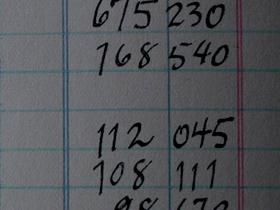 675 230
768 540
112 045
108 111
98